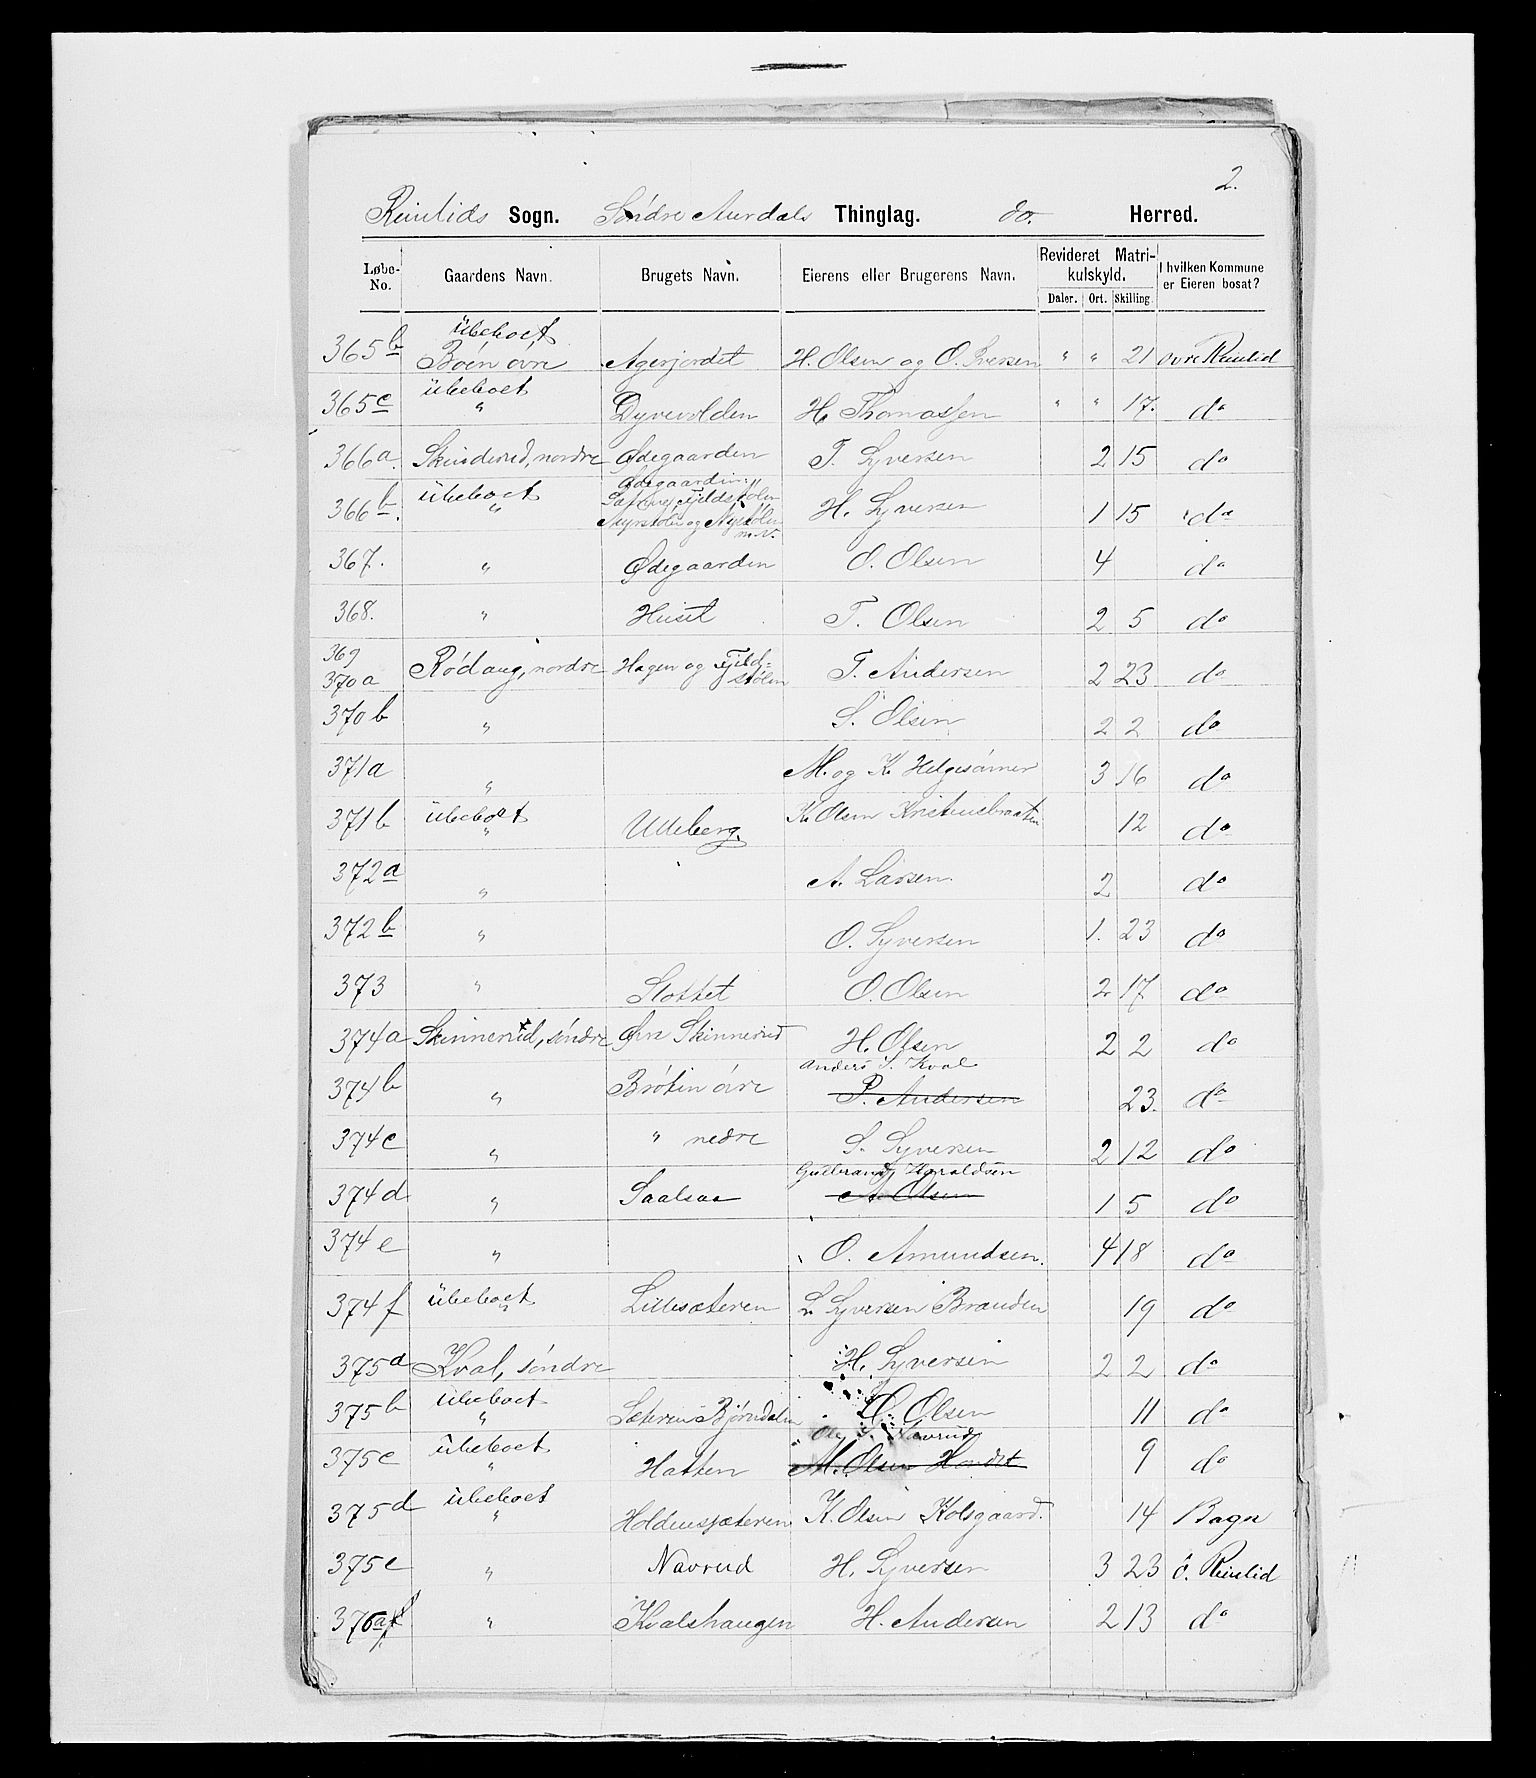 2.
Reinlids Sogn. Søndre Aurdals Thinglag. do. Herred.
Løbe-No. Gaardens Navn. Brugets Navn. Eierens eller Brugerens Navn. Revideret Matrikulskyld. I hvilken Kommune er Eieren bosat?
Daler. Ort. Skilling.
365b ubeboet Bøen øvre Agerjordet H. Olsen og O. Iversen " " 21 øvre Reinlid
365c ubeboet " Dyrevolden H. Thomassen " " 17. do
366a. Skinderud, nordre Ødegaarden T. Syversen 2 15 do
366b. ubeboet " Ødegaarden: Fjeldstølen Myrstølen og Nystølen m.v. H. Syversen 1 15 do
367. " Ødegaarden O. Olsen 4 do
368. " Huset T. Olsen 2 5 do
369 370a Rødaug, nordre Hagen og Fjeldstølen T. Andersen 2 23 do
370b " S. Olsen 2 2 do
371a " M. og K. Helgesønner 3 16 do
371b ubeboet " Uleberg. K. Olsen Kristiusbraaten 12 do
372a " A. Larsen. 2 do
372b " O. Syversen 1. 23 do
373 " Slottet O. Olsen 2 17 do
374a Skinnerud, søndre Øvre Skinnerud H. Olsen 2 2 do
374b " Brøtin øvre Anders S. Kval P. Andersen 23. do
374c " " nedre S. Syversen 2 12 do
374d " Saalsaa Gudbrand Haraldsen A. Olsen 1 5 do
374e " O. Amundsen. 4 18 do
374f ubeboet " Lillesæteren L. Syversen Branden 19 do
375a Kval, søndre H. Syversen 2 2 do
375b ubeboet " Sæteren Bjørndalen O. Olsen 11 do
375c ubeboet " Hatten Ole S. Navrud M. Olsen 9 do
375d ubeboet " Holdenssæteren K. Olsen Kolsgaard. 14 Bagn
375e " Navrud H. Syversen 3 23 ø. Reinlid
376a " Kvalshaugen H. Andersen 2 13 do